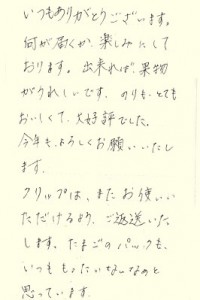 いつもありがとうございます。
何が届くか、楽しみにして
おります。出来れば、果物
がうれしいです。のりも、とても
おいしくて、大好評でした。
今年も、よろしくお願いいたし
ます。
クリップは、またお使いい
ただけるよう、ご返送いた
します。たまごのパックも、
いつももったいないなのと
思っています。